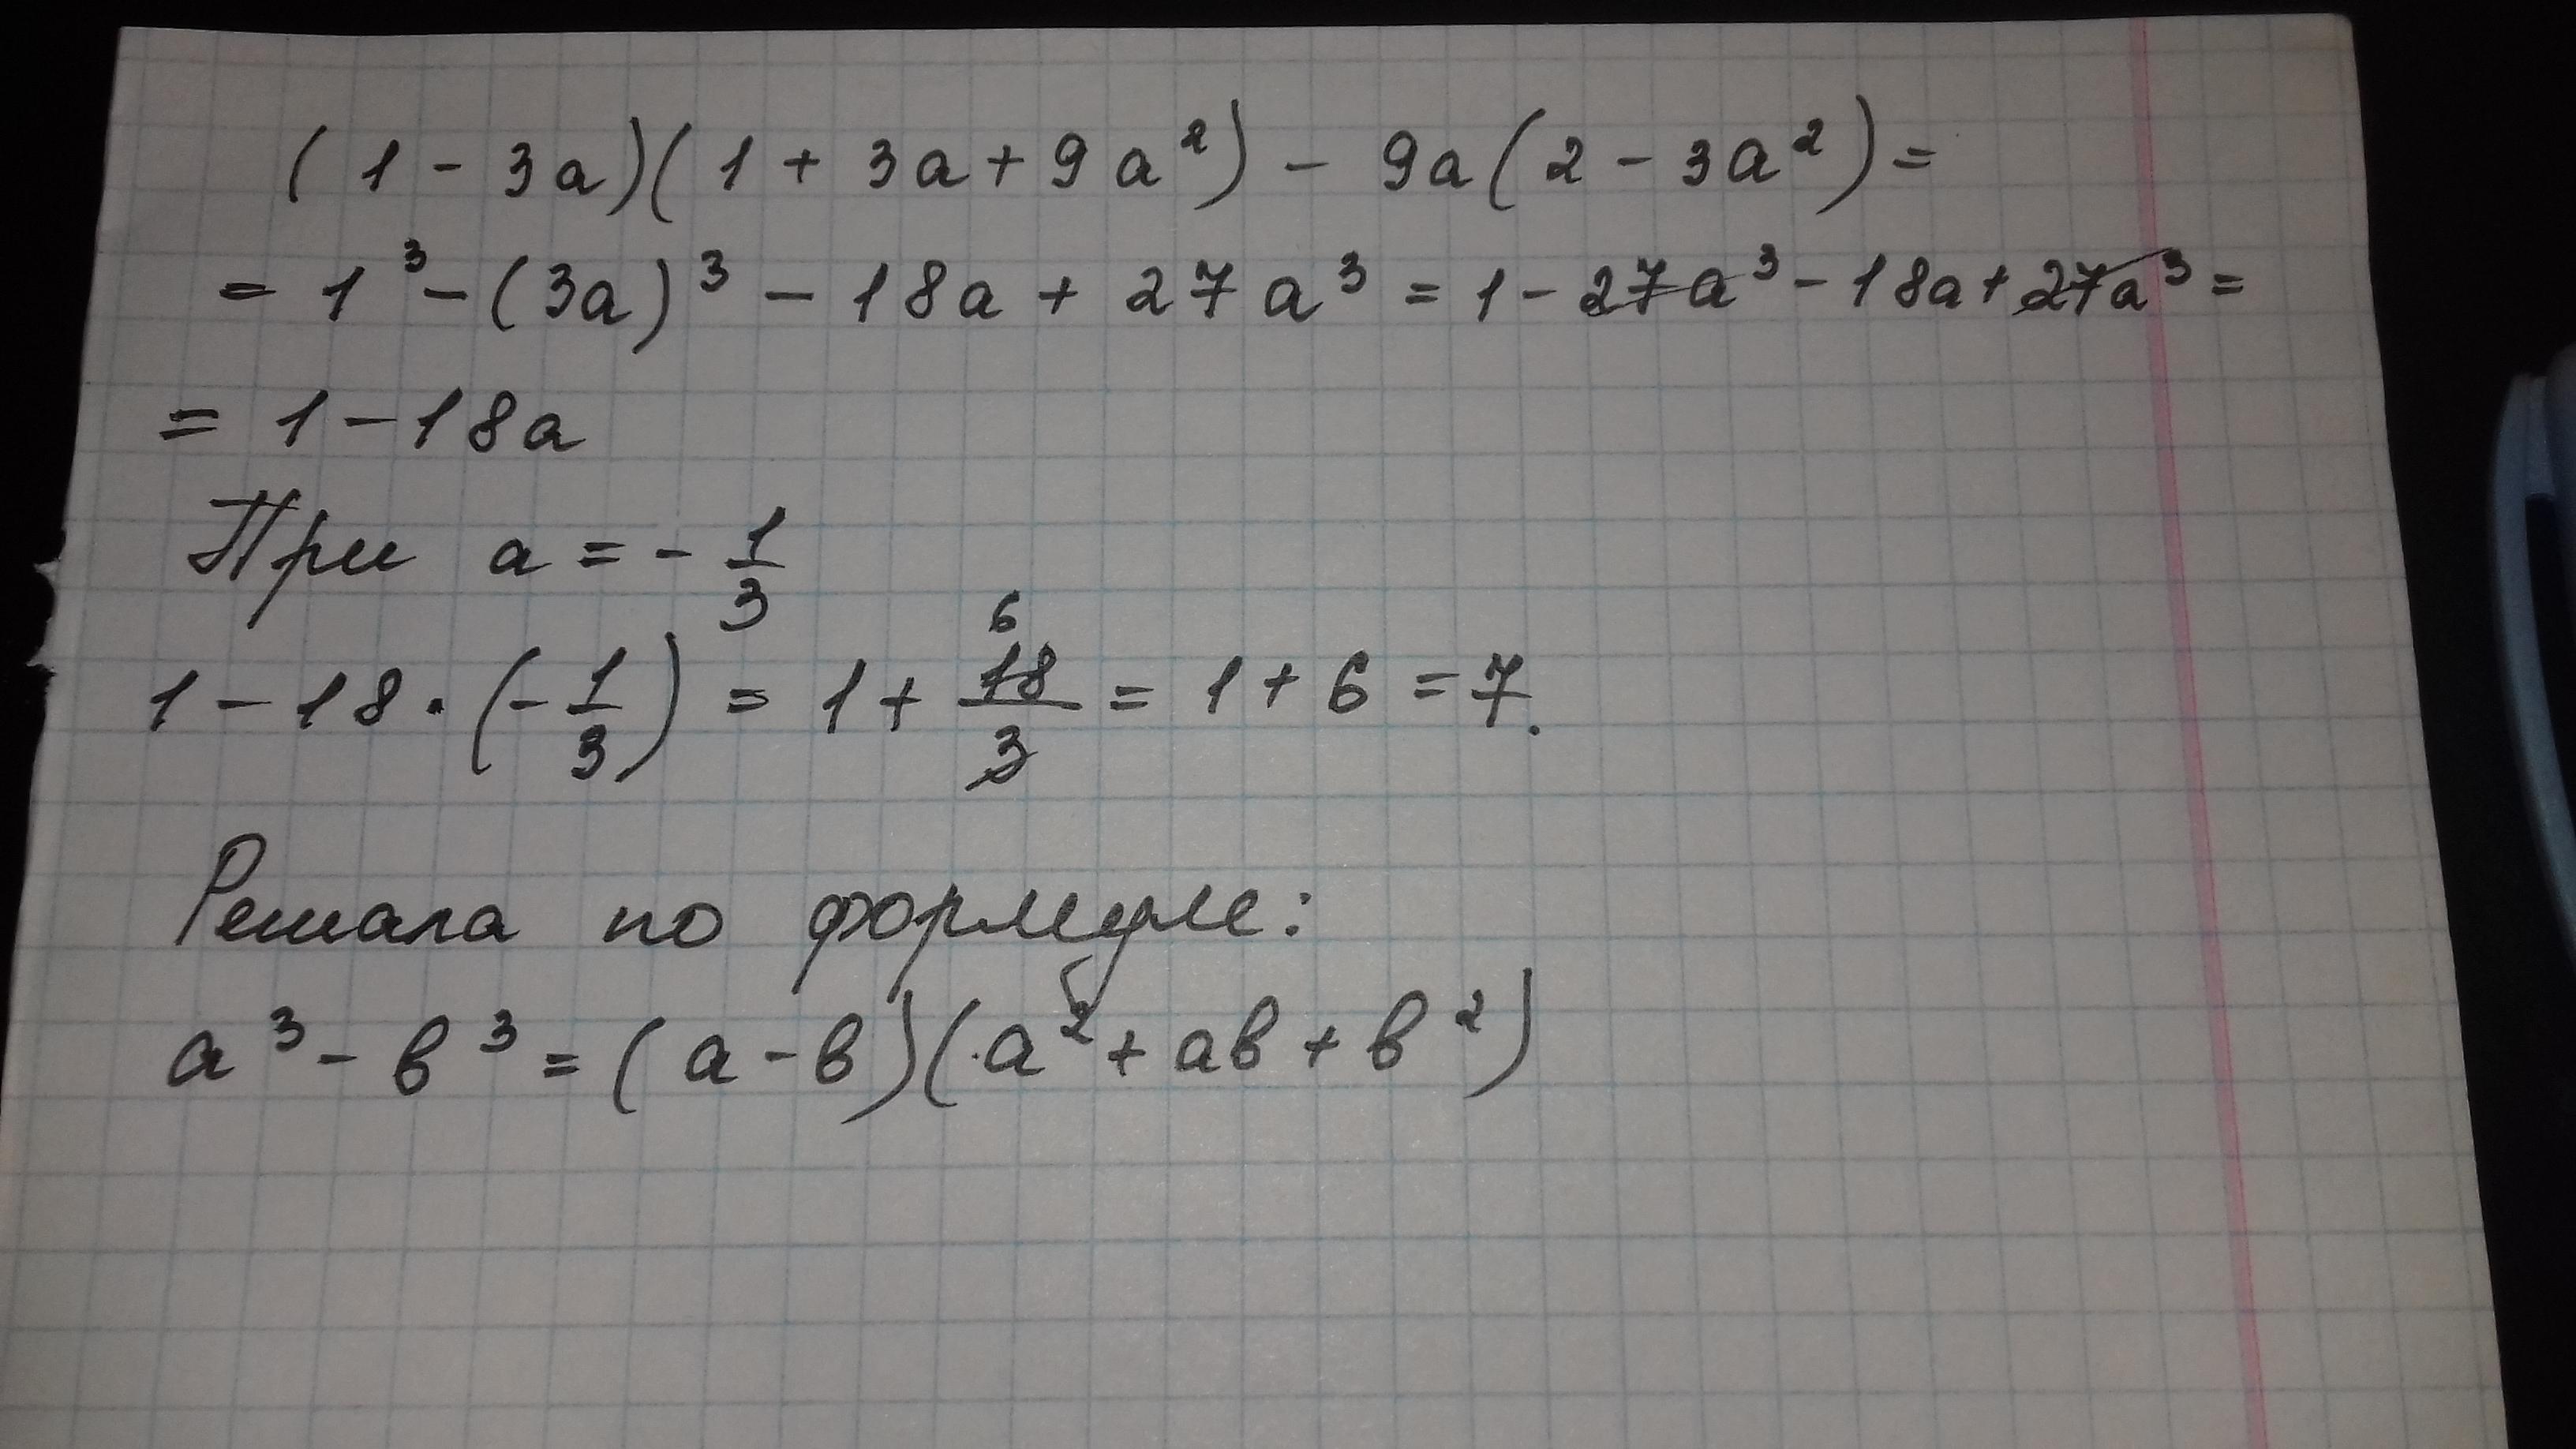 (1 - 3a)(1 + 3a + 9a²) - 9a(2 - 3a²) =
= 1³ - (3a)³ - 18a + 27a³ = 1 - 27a³ - 18a + 27a³ =
= 1 - 18a
При a = - 1/3
1 - 18 · (- 1/3) = 1 + 18/3 6 = 1 + 6 = 7.
Решала по формуле:
a³ - в³ = (a - в)(a² + aв + в²)